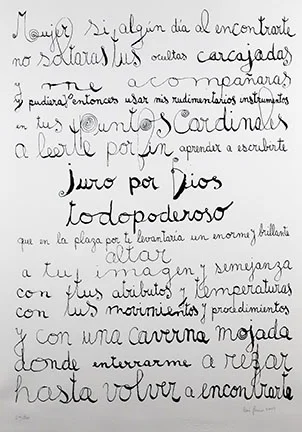 Mujer si algún día al encontrarte
no soltaras tus ocultas carcajadas
y me acompañaras
y pudiera entonces usar mis rudimentarios instrumentos
en tus puntos cardinales
a leerte por fin aprender a escribirte
juro por Dios
todopoderoso
que en la plaza por ti levantaría un enorme y brillante
altar
a tu imagen y semejanza
con tus atributos y temperaturas
con tus movimientos y procedimientos
y con una caverna mojada
donde enterrarme a rezar
hasta volver a encontrarte